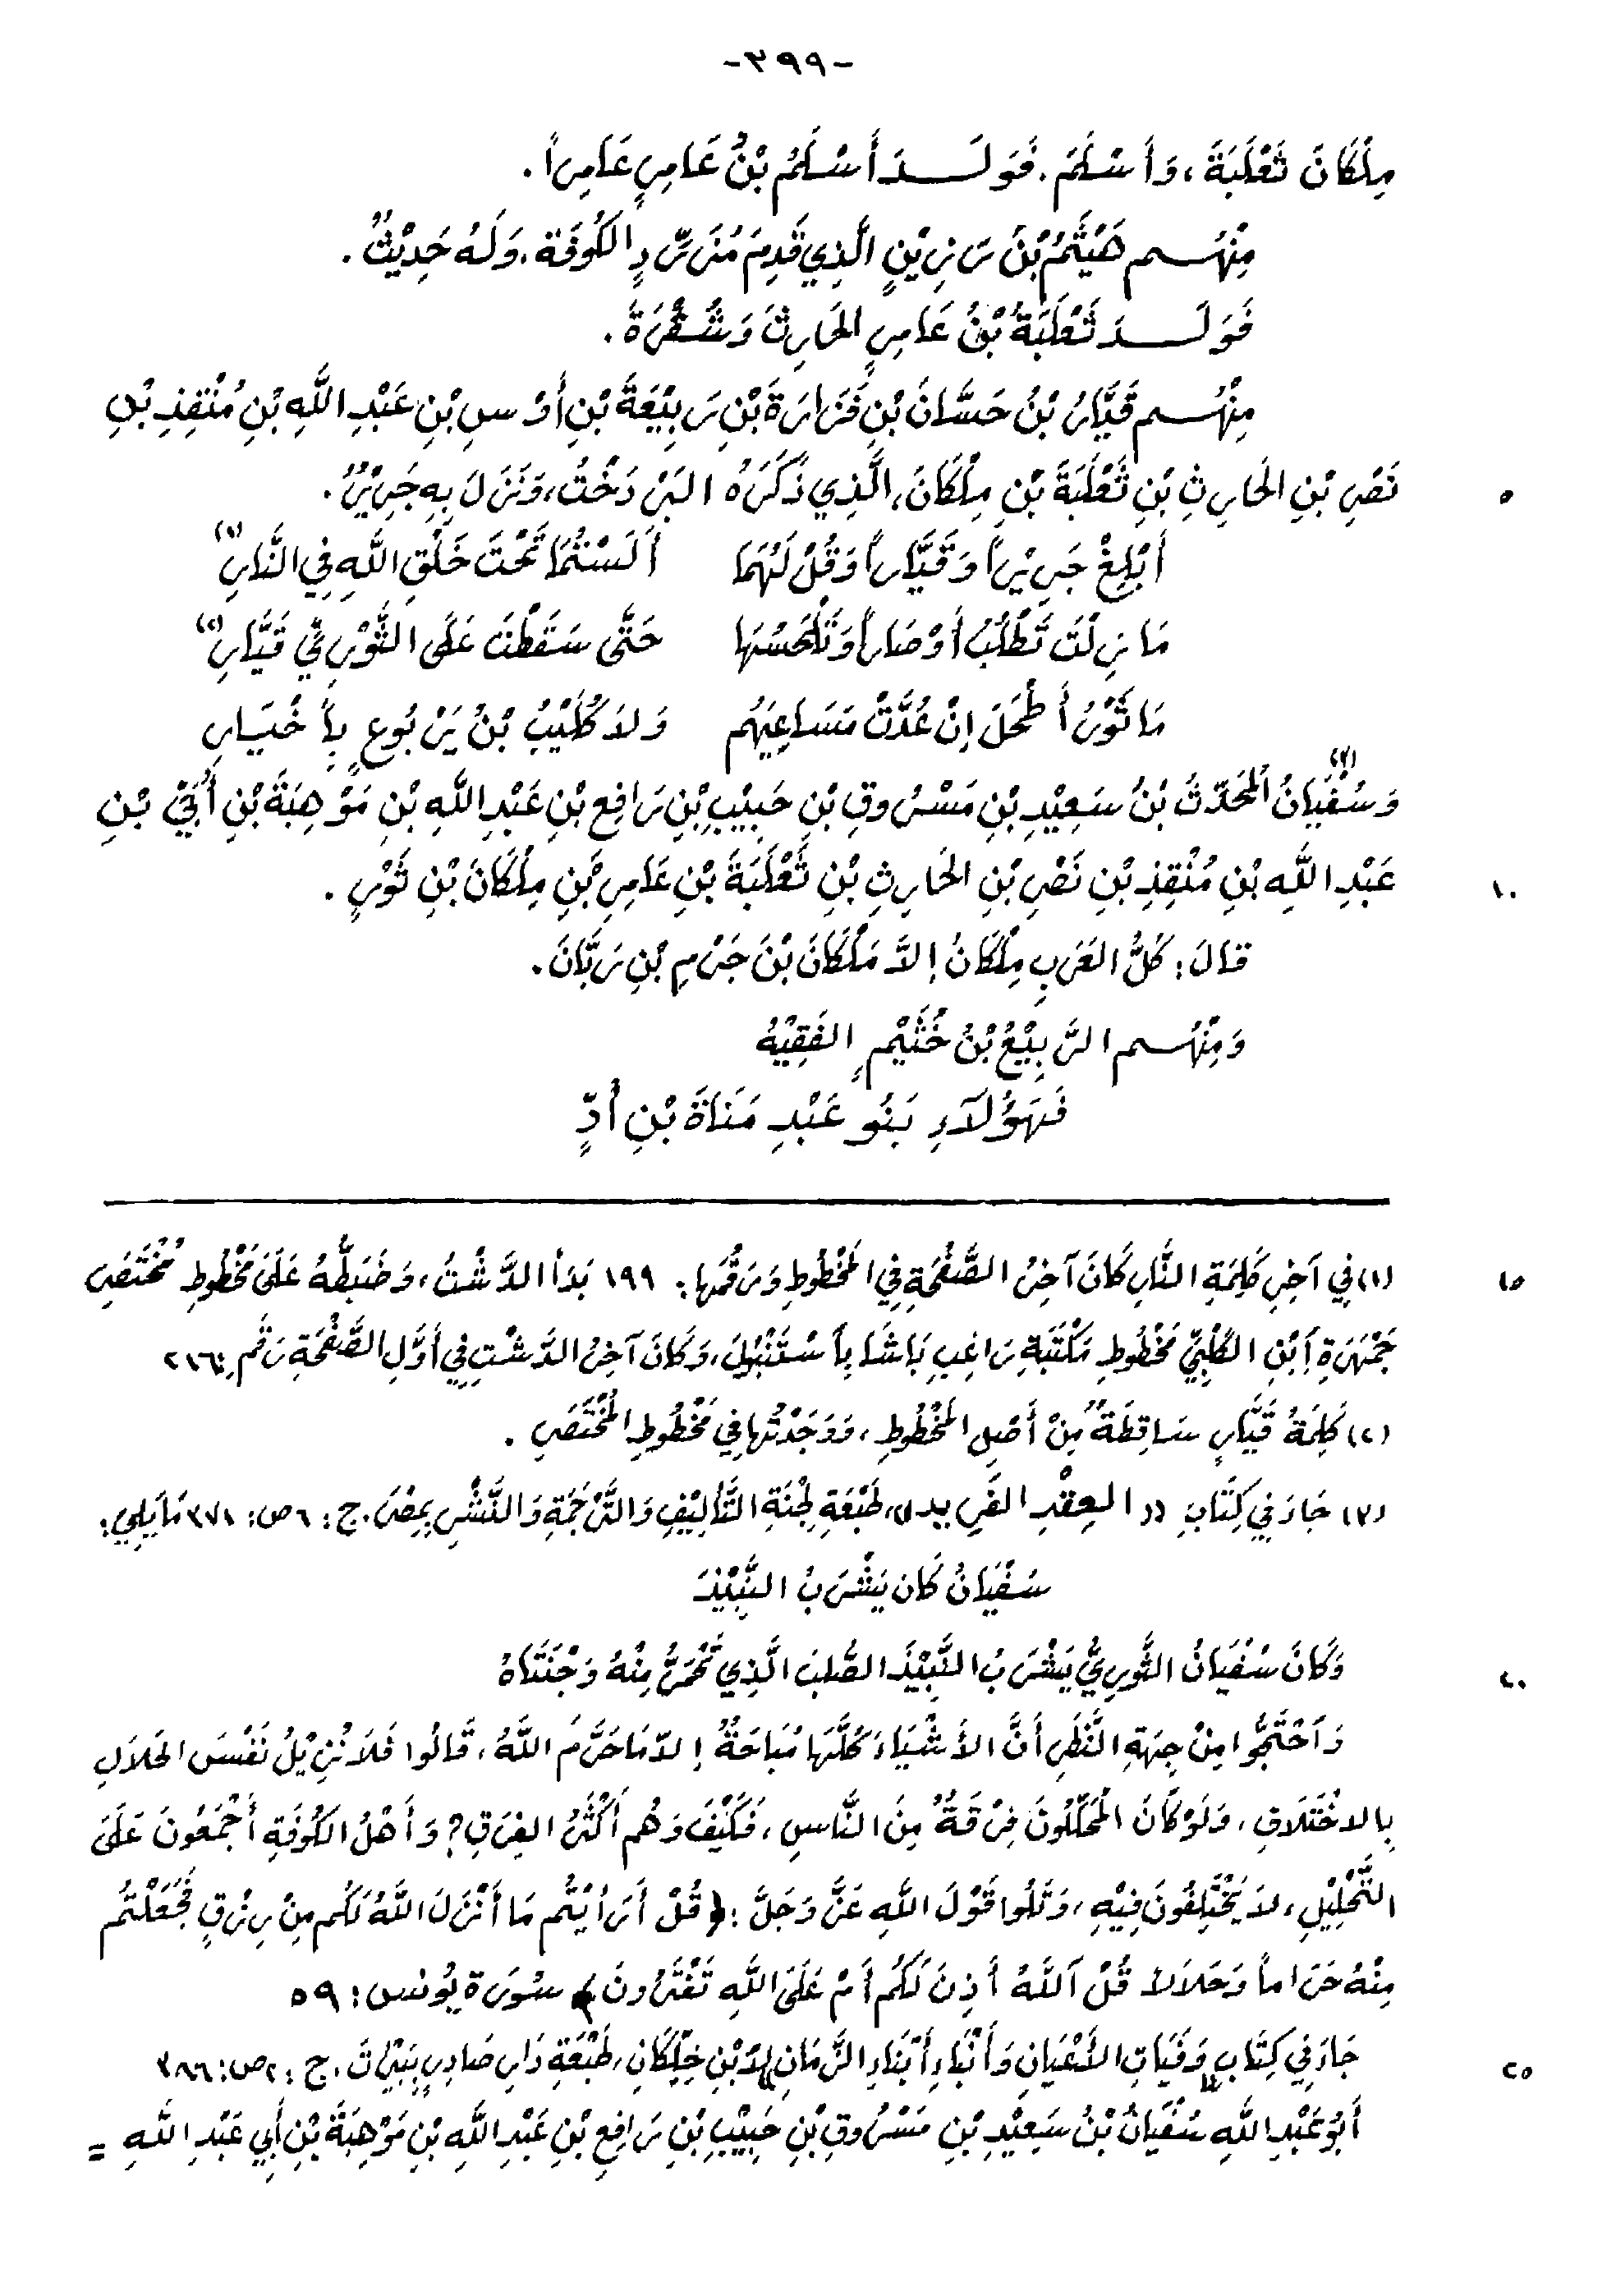 -٣٩٩-
مِلْكَانَ ثَعْلَبَةَ، وَأَسْلَمَ. فَوَلَدَ أَسْلَمُ بْنُ عَامِرٍ عَامِراً.
مِنْهُم هَيْثَمُ بْنُ رَزِيْنٍ الَّذِي قَدِمَ مُزَرِّدٍ الكُوفَة، وَلَهُ حَدِيْثٌ.
فَوَلَدَ ثَعْلَبَةُ بْنُ عَامِرٍ الحَارِثَ وَشُقْرَةَ.
مِنْهُم قَيَّارُ بْنُ حَسَّانَ بْنِ فَزَارَةَ بْنِ رَبِيْعَةَ بْنِ أَوْسِ بْنِ عَبْدِ اللَّهِ بْنِ مُنْقِذِ بْنِ
نَصْرِ بْنِ الحَارِثِ بْنِ ثَعْلَبَةَ بْنِ مِلْكَانَ، الَّذِي ذَكَرَهُ البَرْدَخْتُ، وَنَزَلَ بِهِ جَرِيْرٌ. ٥
أَبْلِغْ جَرِيْراً وَقَيَّاراً وَقُلْ لَهُمَا أَلَسْتُمَا تَحْتَ خَلْقِ اللَّهِ فِي النَّارِ (١)
مَا زِلْتَ تَطْلُبُ أَوْضَاراً وَتَلْحَسُهَا حَتَّى سَقَطْتَ عَلَى الثَّوْرِيِّ قَيَّارِ (٢)
مَا ثَوْرُ أَطْحَلَ إِنْ عُدَّتْ مَسَاعِيَهُم وَلاَ كُلَيْبُ بْنُ يَرْبُوعٍ بِأَخْيَارِ
وَسُفْيَانُ (٣) المُحَدِّثُ بْنُ سَعِيْدِ بْنِ مَسْرُوقِ بْنِ حَبِيْبِ بْنِ رَافِعِ بْنِ عَبْدِ اللَّهِ بْنِ مَوْهِبَةَ بْنِ أُبَيِّ بْنِ
عَبْدِ اللَّهِ بْنِ مُنْقِذِ بْنِ نَصْرِ بْنِ الحَارِثِ بْنِ ثَعْلَبَةَ بْنِ عَامِرِ بْنِ مِلْكَانَ بْنِ ثَوْرٍ. ١٠
قالَ: كُلُّ العَرَبِ مِلْكَانُ إلاَّ مَلْكَانَ بْنَ جَرْمِ بْنِ رَبَّانَ.
وَمِنْهُم الرَّبِيْعُ بْنُ خُثَيْمٍ الفَقِيْهُ
فَهَؤُلَاءِ بَنُو عَبْدِ مَنَاةَ بْنِ أُدٍّ
(١) فِي آخِرِ كَلِمَةِ النَّارِ كَانَ آخِرُ الصَّفْحَةِ فِي المَخْطُوطِ وَرَقْمُهَا: ١٩٩ بَدَأ الدَّشْتُ، وَضَبَطُّهُ عَلَى مَخْطُوطِ مُخْتَصَرِ ١٥
جَمْهَرَةِ اَبْنِ الكَلْبِيِّ مَخْطُوطِ مَكْتَبَةِ رَاغِبِ بَاشَا بِأسْتَنْبُولَ، وَكَانَ آخِرُ الدَّشْتِ فِي أَوَّلِ الصَّفْحَةِ رَقْم: ٢١٦
(٢) كَلِمَةُ قَيَّارٍ سَاقِطَةٌ مِنْ أَصْلِ المَخْطُوطِ، وَوَجَدْتُهَا فِي مَخْطُوطِ المُخْتَصَرِ.
(٣) جَاءَ فِي كِتَابِ «العِقْدِ الفَرِيد» طَبْعَةِ لَجْنَةِ التَّأْلِيْفِ وَالتَّرْجَمَةِ وَالنَّشْرِ بِمِصْرَ. ج: ٦ ص: ٣٧١ مَا يَلِي:
سَفْيَانُ كَان يَشْرَبُ النَّبِيْذَ
وَكَانَ سُفْيَانُ الثَّوْرِيُّ يَشْرَبُ النَّبِيْذَ الصُّلْبَ الَّذِي تَحْمَرُّ مِنْهُ وَجْنَتَاهُ ٢٠
وَاَحْتَجُّوا مِنْ جِهَةِ النَّظَرِ أَنَّ الأَشْيَاءَ كُلَّهَا مُبَاحَةٌ إلاّ مَا حَرَّمَ اللَّهُ، قَالُوا فَلاَ نُزِيْلُ نَفْسَ الحَلاَلِ
بِالاخْتَلاَفِ، وَلَوْ كَانَ المُحَلِّلُونَ فِرْقَةً مِنَ النَّاسِ، فَكَيْفَ وَهُم أَكْثَرُ الفِرَقِ؟ وَأَهْلُ الكُوفَةِ أَجْمَعُونَ عَلَى
التَّحْلِيْلِ، لاَ يَخْتَلِفُونَ فِيْهِ، وَتَلُوا قَوْلَ اللَّهِ عَزَّ وَجَلَّ: ﴿قُلْ أَرَأَيْتُم مَا أَنْزَلَ اللَّهُ لَكُم مِنْ رِزْقٍ فَجَعَلْتُم
مِنْهُ حَرَاماً وَحَلاَلاً قُلْ آللَّهُ أَذِنَ لَكُم أَمْ عَلَى اللَّهِ تَفْتَرُونَ﴾ سُورَة يُونس: ٥٩
جَاءَ فِي كِتَابِ «وَفَيَاتِ الأَعْيَانِ وَأَنْبَاءِ أَبْنَاءِ الزَّمَانِ» لِابْنِ خِلِّكَانَ، طَبْعَةِ دَارِ صَادِرٍ بِبَيْرُاتَ. ج: ٢ ص: ٣٨٦ ٢٥
أَبُو عَبْدِ اللَّهِ سُفْيَانُ بْنُ سَعِيْدِ بْنِ مَسْرُوقِ بْنِ حَبِيْبِ بْنِ رَافِعِ بْنِ عَبْدِ اللَّهِ بْنِ مَوْهِبَةَ بْنِ أَبِي عَبْدِ اللَّهِ =